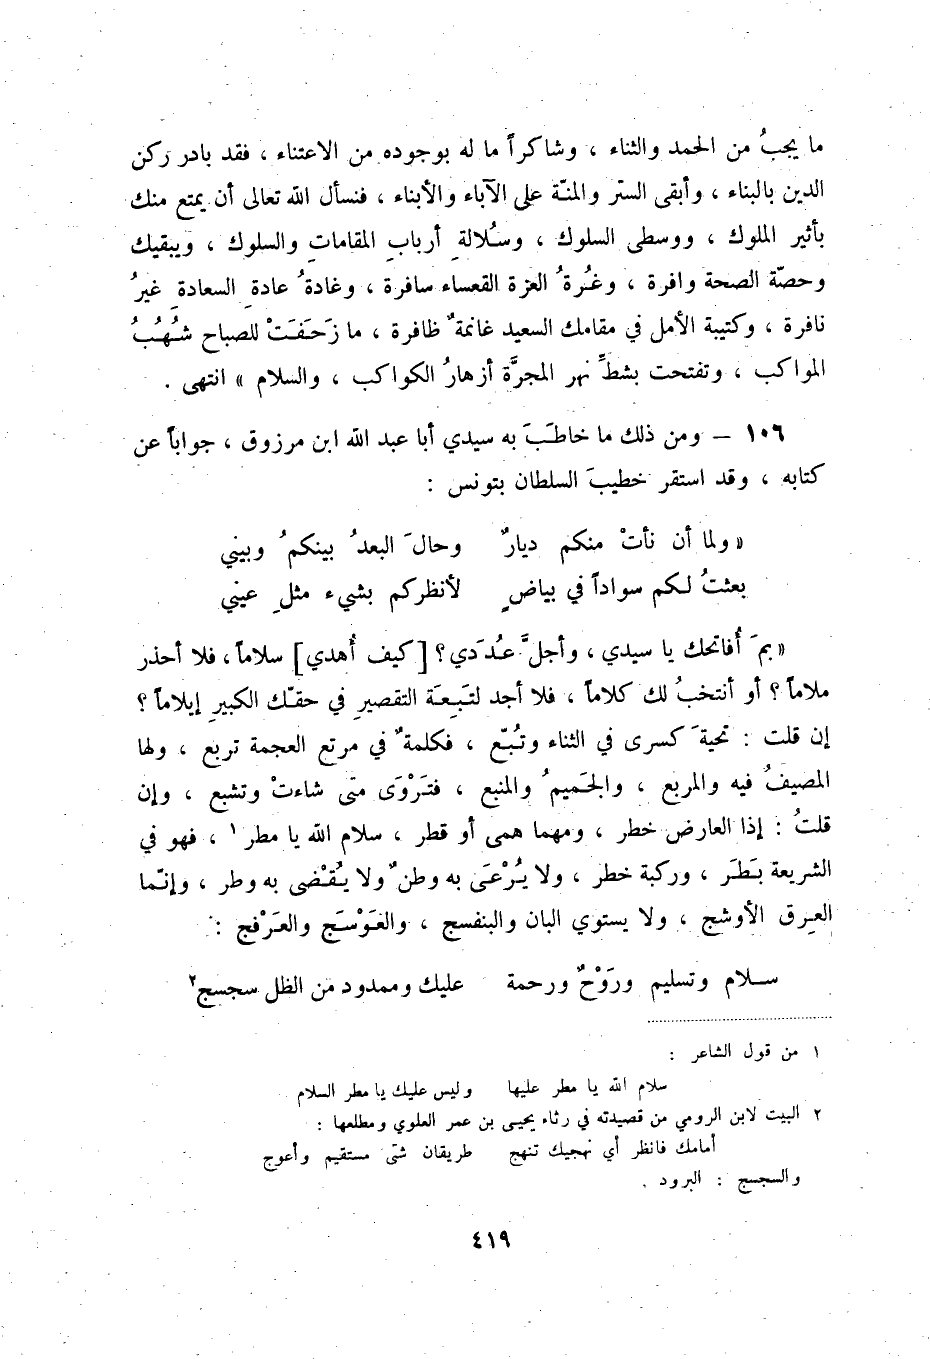 ما يجبُ من الحمد والثناء ، وشاكراً ما له بوجوده من الاعتناء ، فقد بادر ركن
الدين بالبناء ، وأبقى الستر والمنّة على الآباء والأبناء ، فنسأل الله تعالى أن يمتع منك
بأثير الملوك ، ووسطى السلوك ، وسُلالةِ أربابِ المقاماتِ والسلوك ، ويبقيك
وحصّة الصحة وافرة ، وغُرةُ العزة القعساء سافرة ، وغادةُ عادةِ السعادةِ غيرُ
نافرة ، وكتيبة الأمل في مقامك السعيد غانمةٌ ظافرة ، ما زَحَفَتْ للصباح شُهُبُ
المواكب ، وتفتحت بشطِّ نهر المجرَّة أزهارُ الكواكب ، والسلام » انتهى .
١٠٦ – ومن ذلك ما خاطَبَ به سيدي أبا عبد الله ابن مرزوق ، جواباً عن
كتابه ، وقد استقر خطيبَ السلطان بتونس :
« ولما أن نأتْ منكم ديارٌ وحالَ البعدُ بينكمُ وبيني
بعثتُ لكم سواداً في بياضٍ لأنظركم بشيء مثلِ عيني
« بمَ أُفاتحك يا سيدي ، وأجلَّ عُدَدي ؟ [كيف أُهدي] سلاماً ، فلا أحذر
ملاماً ؟ أو أنتخبُ لك كلاماً ، فلا أجد لتَبِعَة التقصيرِ في حقّك الكبيرِ إيلاماً ؟
إن قلت : تحيةَ كسرى في الثناء وتُبّع ، فكلمةٌ في مرتع العجمة تربع ، ولها
المصيفُ فيه والمربع ، والجَميمُ والمنبع ، فتَرْوَى متى شاءتْ وتشبع ، وإن
قلتُ : إذا العارض خطر ، ومهما همى أو قطر ، سلام الله يا مطر ١ ، فهو في
الشريعة بَطَر ، وركبة خطر ، ولا يُرْعَى به وطنٌ ولا يُقْضى به وطر ، وإنّما
العرق الأوشج ، ولا يستوي البان والبنفسج ، والعَوْسَج والعَرْفج :
سلام وتسليم ورَوْحٌ ورحمة عليك وممدود من الظل سجسج ٢
١ من قول الشاعر :
سلام الله يا مطر عليها وليس عليك يا مطر السلام
٢ البيت لابن الرومي من قصيدته في رثاء يحيى بن عمر العلوي ومطلعها :
أمامك فانظر أي نهجيك تنهج طريقان شتى مستقيم وأعوج
والسجسج : البرود .
٤١٩